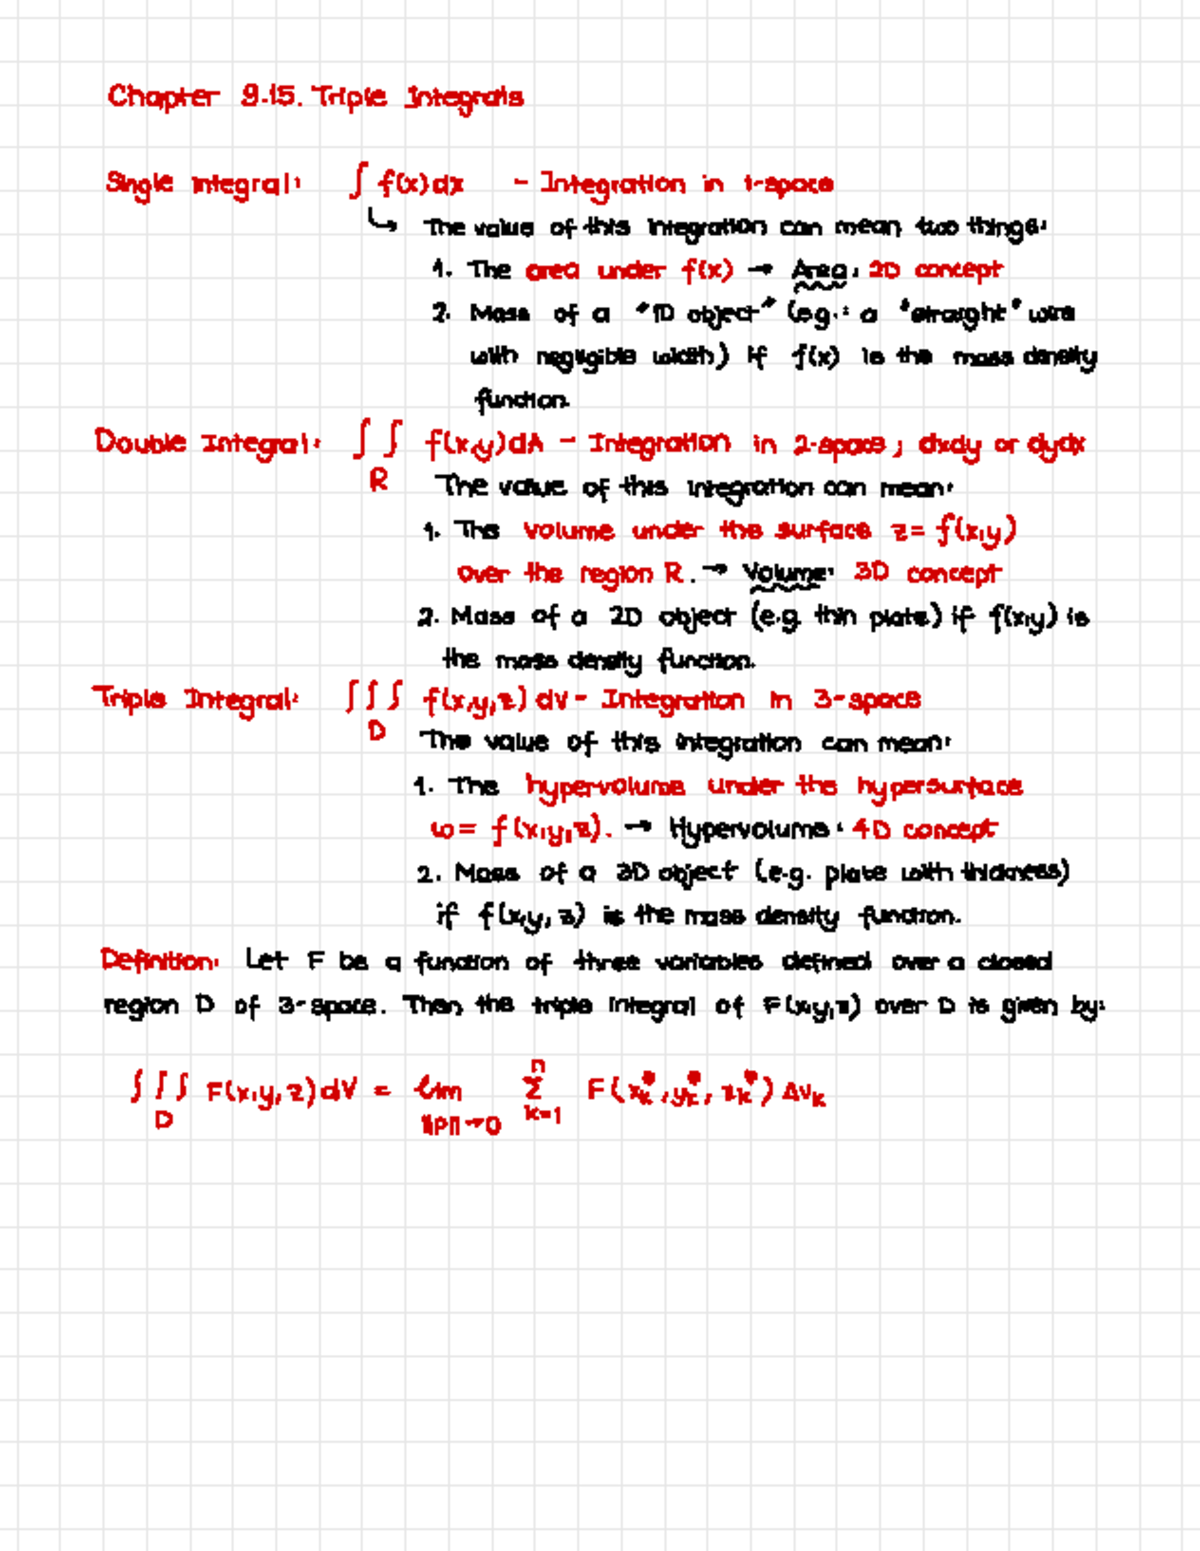 Chapter 9.15. Triple Integrals
Single Integral: ∫ f(x)dx - Integration in 1-space
↳ The value of this integration can mean two things:
1. The area under f(x) → Area: 2D concept
2. Mass of a "1D object" (e.g.: a "straight" wire
with negligible width) if f(x) is the mass density
function.
Double Integral: ∫∫ f(x,y)dA - Integration in 2-space; dxdy or dydx
R The value of this integration can mean:
1. The volume under the surface z = f(x,y)
over the region R. → Volume: 3D concept
2. Mass of a 2D object (e.g. thin plate) if f(x,y) is
the mass density function.
Triple Integral: ∫∫∫ f(x,y,z) dV - Integration in 3-space
D The value of this integration can mean:
1. The hypervolume under the hypersurface
w = f(x,y,z). → Hypervolume: 4D concept
2. Mass of a 3D object (e.g. plate with thickness)
if f(x,y,z) is the mass density function.
Definition: Let F be a function of three variables defined over a closed
region D of 3-space. Then the triple integral of F(x,y,z) over D is given by:
∫∫∫ F(x,y,z)dV = lim n Σ F(xk*, yk*, zk*) ΔVk
D ‖P‖→0 k=1